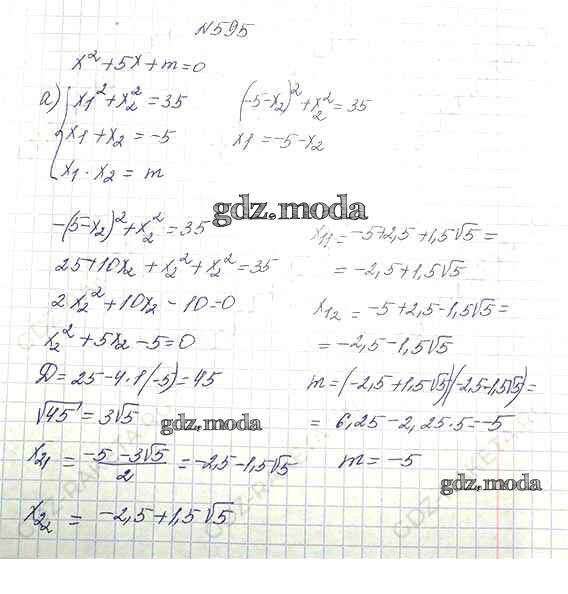 N595
x² + 5x + m = 0
а) { x₁² + x₂² = 35
x₁ + x₂ = -5
x₁ · x₂ = m
(-5-x₂)² + x₂² = 35
x₁ = -5-x₂
gdz.moda
-(5-x₂)² + x₂² = 35
25+10x₂ + x₂² + x₂² = 35
2x₂² + 10x₂ - 10 = 0
x₂² + 5x₂ - 5 = 0
D = 25-4·1(-5) = 45
√45 = 3√5
gdz.moda
x₂₁ = (-5-3√5)/2 = -2,5-1,5√5
x₂₂ = -2,5+1,5√5
x₁₁ = -5+2,5+1,5√5 =
= -2,5+1,5√5
x₁₂ = -5+2,5-1,5√5 =
= -2,5-1,5√5
m = (-2,5+1,5√5)(-2,5-1,5√5) =
= 6,25-2,25·5 = -5
m = -5
gdz.moda